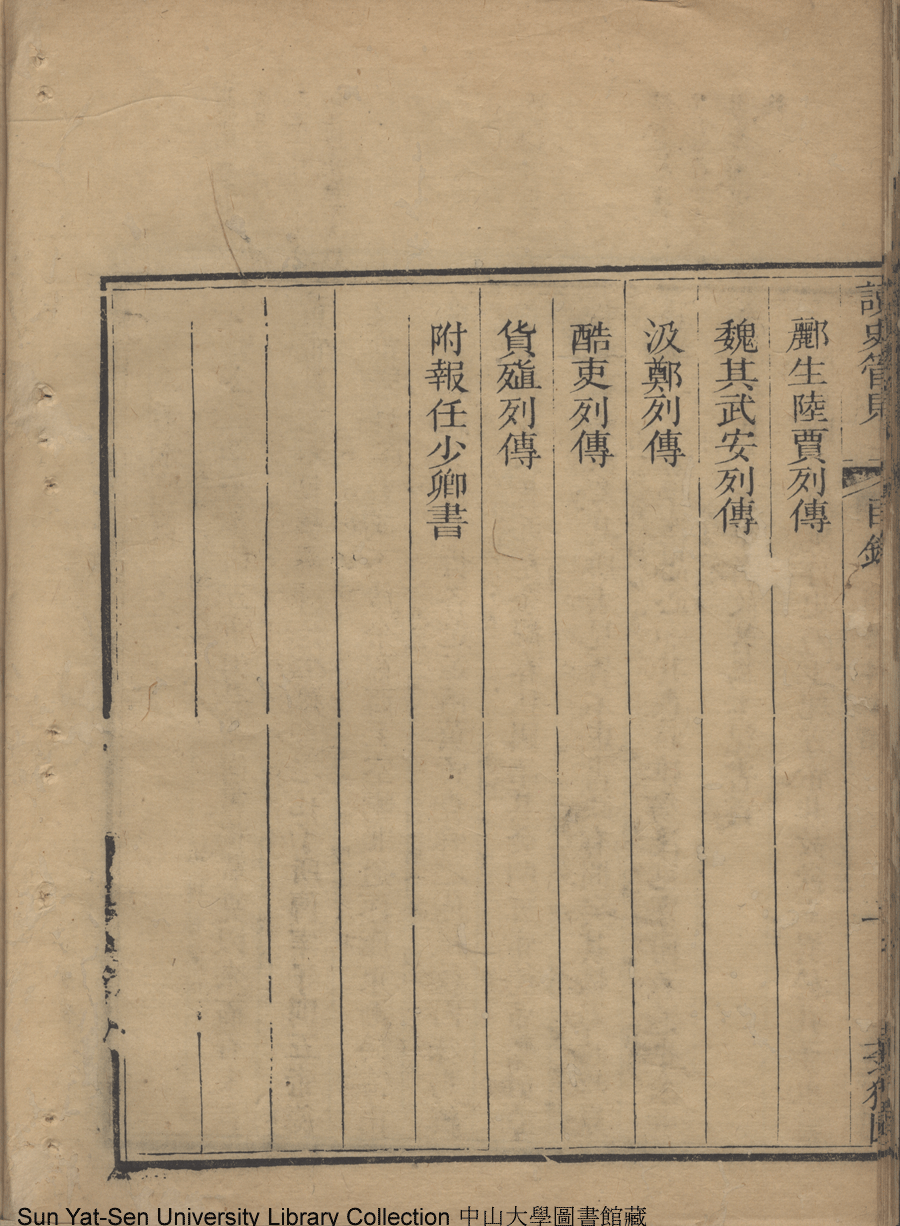 讀史管見 目錄
酈生陸賈列傳
魏其武安列傳
汲鄭列傳
酷吏列傳
貨殖列傳
附報任少卿書
Sun Yat-Sen University Library Collection 中山大學圖書館藏